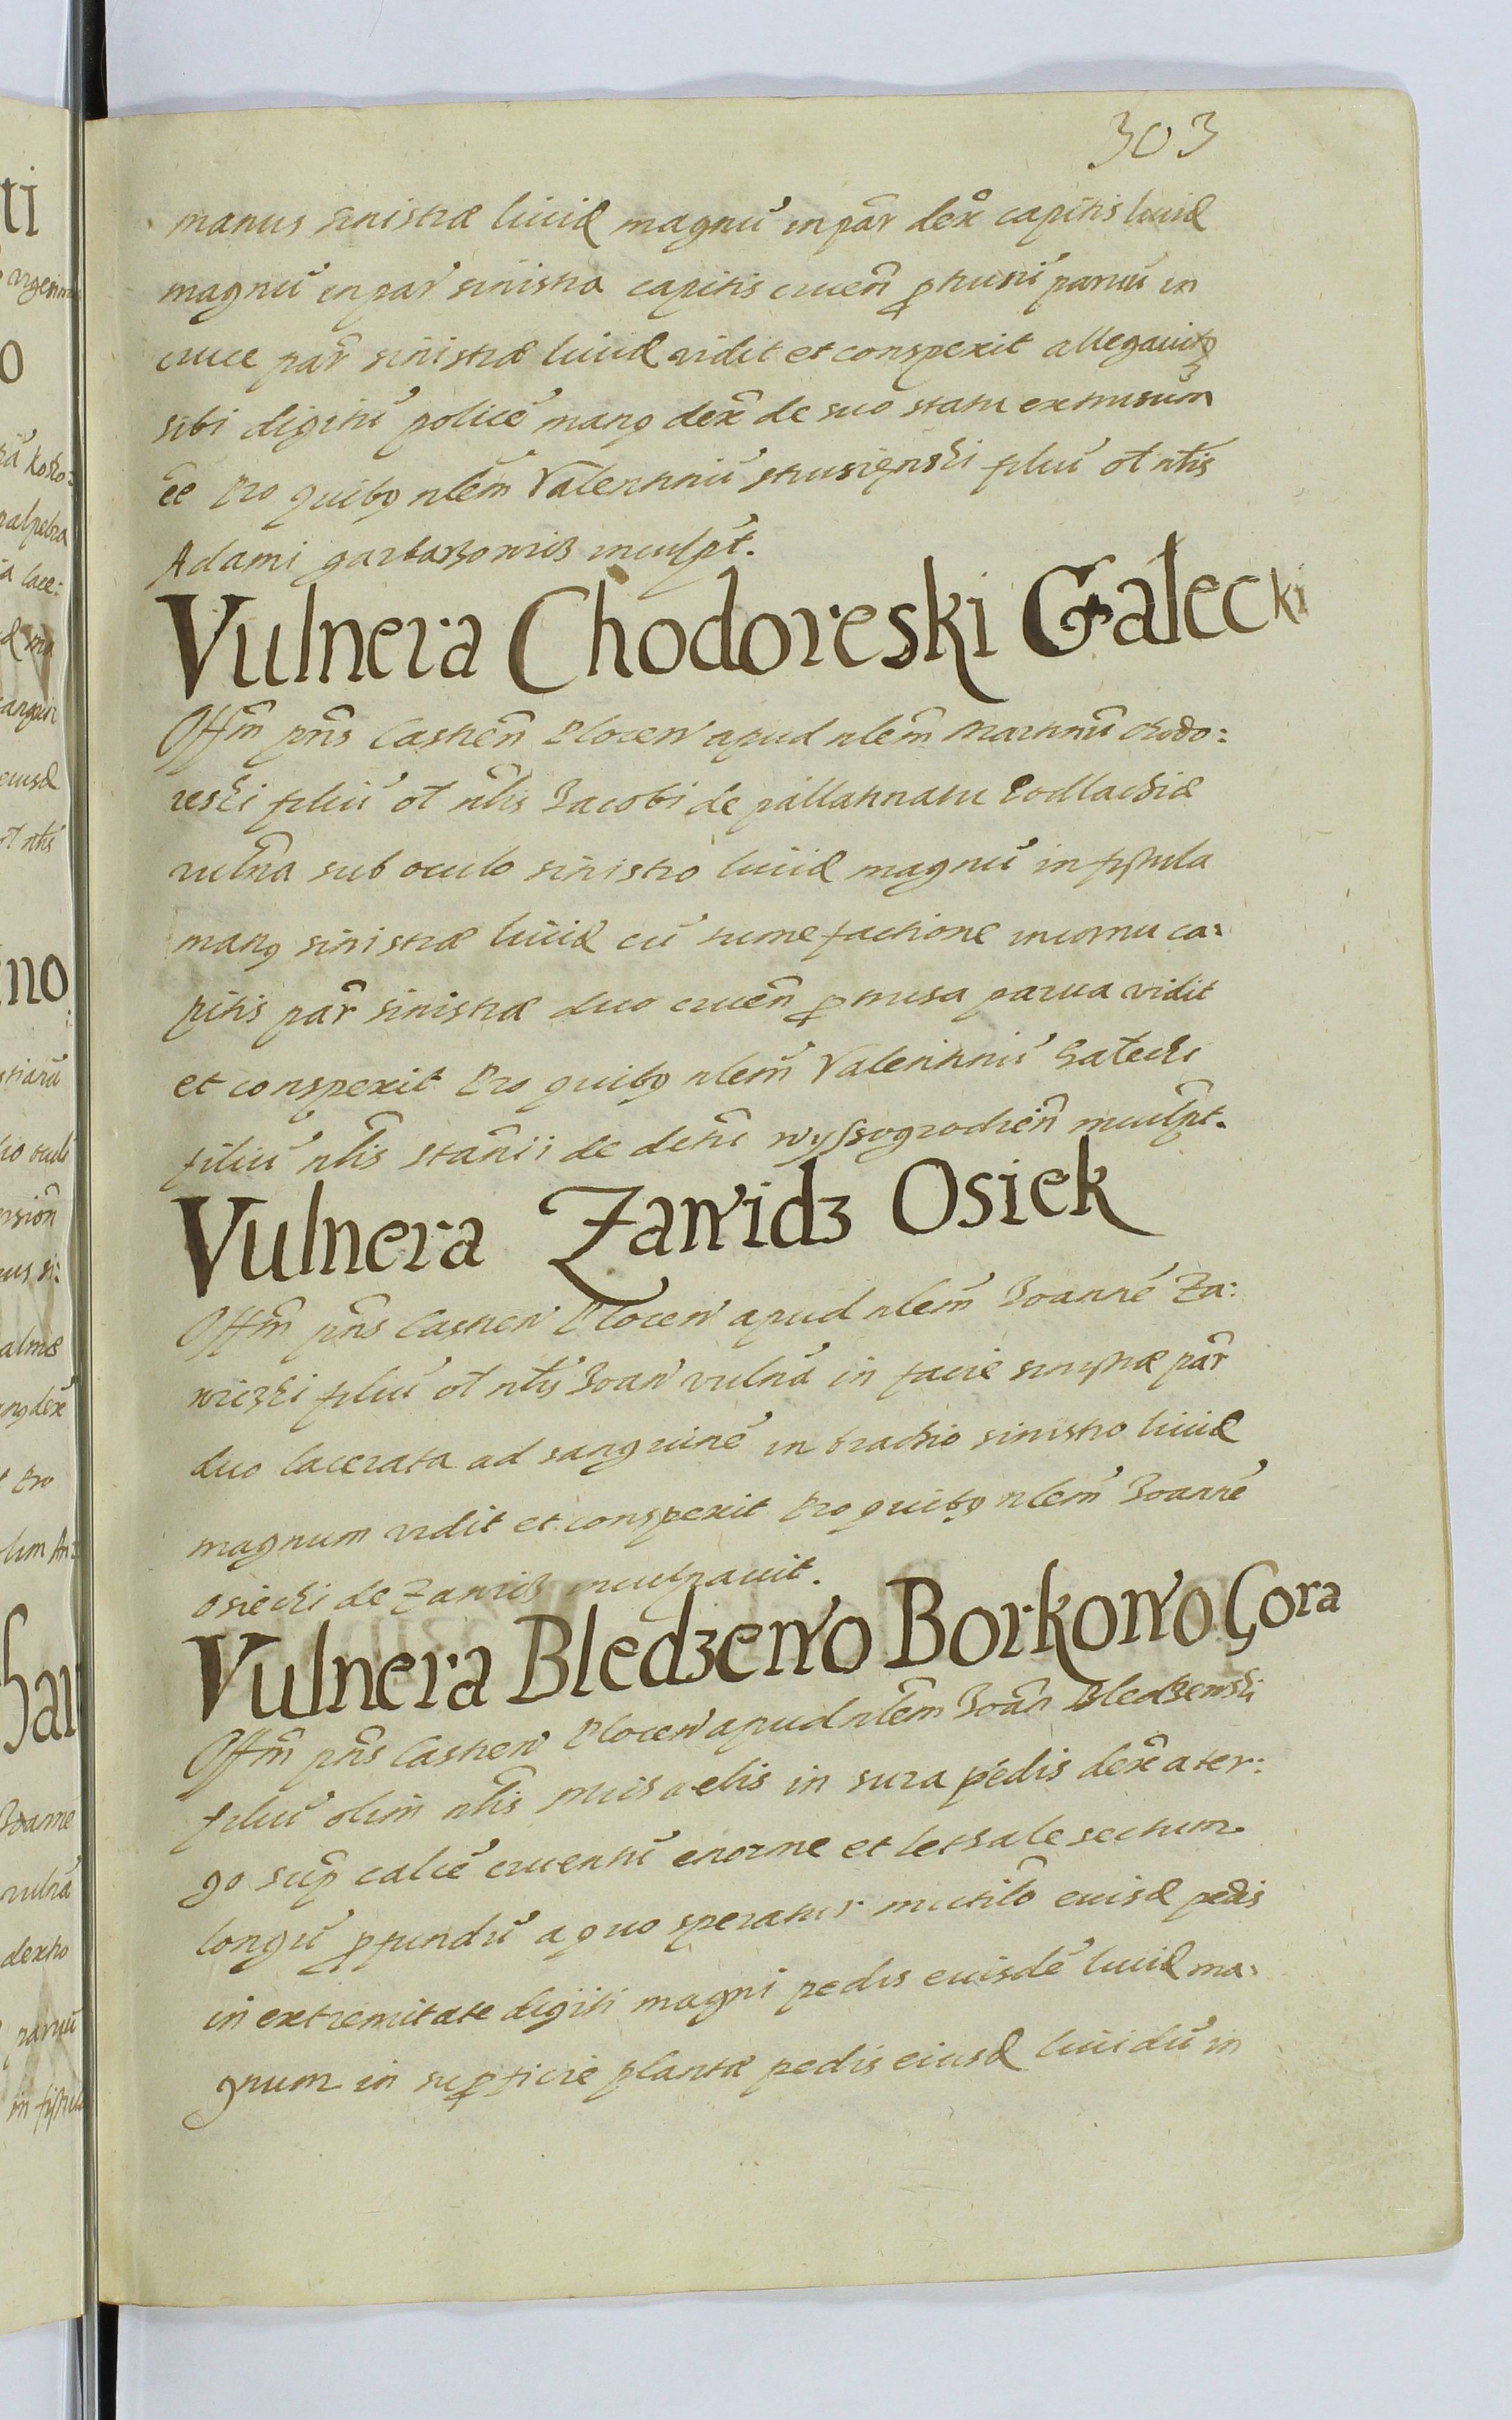 303
manus sinistræ liuid magnū in par̄ dex̄ capitis liuid
magnū in par̄ sinistra capitis cruen̄ ꝑtusū paruū in
cruce par̄ sinistræ liuid vidit et conspexit allegauitqꝫ
sibi digitū policē manꝯ dex̄ de suo statu extrusum
eē Pro quibꝯ nlēm Valentinū filiū ol̄ nl̄is
Adami inculpt̄.
Vulnera Chodoreski Gałecki
Offm̄ pn̄s Castren̄ Plocen̄ apud nlēm Martinū Chodo:
reski filiū ol̄ nl̄is Jacobi de pallatinatu Podlachiæ
vuln̄a sub oculo sinistro liuid magnū in fistula
manꝯ sinistræ liuid cū tumefactione in cornu ca:
pitis par̄ sinistræ duo cruen̄ ꝑtusa parua vidit
et conspexit Pro quibꝯ nlēm Valentinū Gałecki
filiū nl̄is Stan̄ii de wyssogrodien̄ inculpt̄.
Vulnera Zawidz Osiek
Offm̄ pn̄s Castren̄ Plocen̄ apud nlēm Joannē Za:
wiczki filiū ol̄ nl̄is Joan̄ vuln̄a in facie sinistræ par̄
duo lacerata ad sanguinē in brachio sinistro liuid
magnum vidit et conspexit Pro quibꝯ nlēm Joannē
Osiecki de Zawidz inculpauit.
Vulnera Bledzewo Borkowo Gora
Offm̄ pn̄s Castren̄ Plocen̄ apud nlēm Joān Bledzewski
filiū olim nl̄is Misaelis in sura pedis dex̄ a ter:
go sup̄ calcē cruentū enorme et lethale sectum
longū ꝓfundū a quo speratur mutilo̅ eiusd pedis
in extremitate digiti magni pedis eiusdē liuid ma:
gnum in suꝑficie plantæ pedis eiusd liuidū in